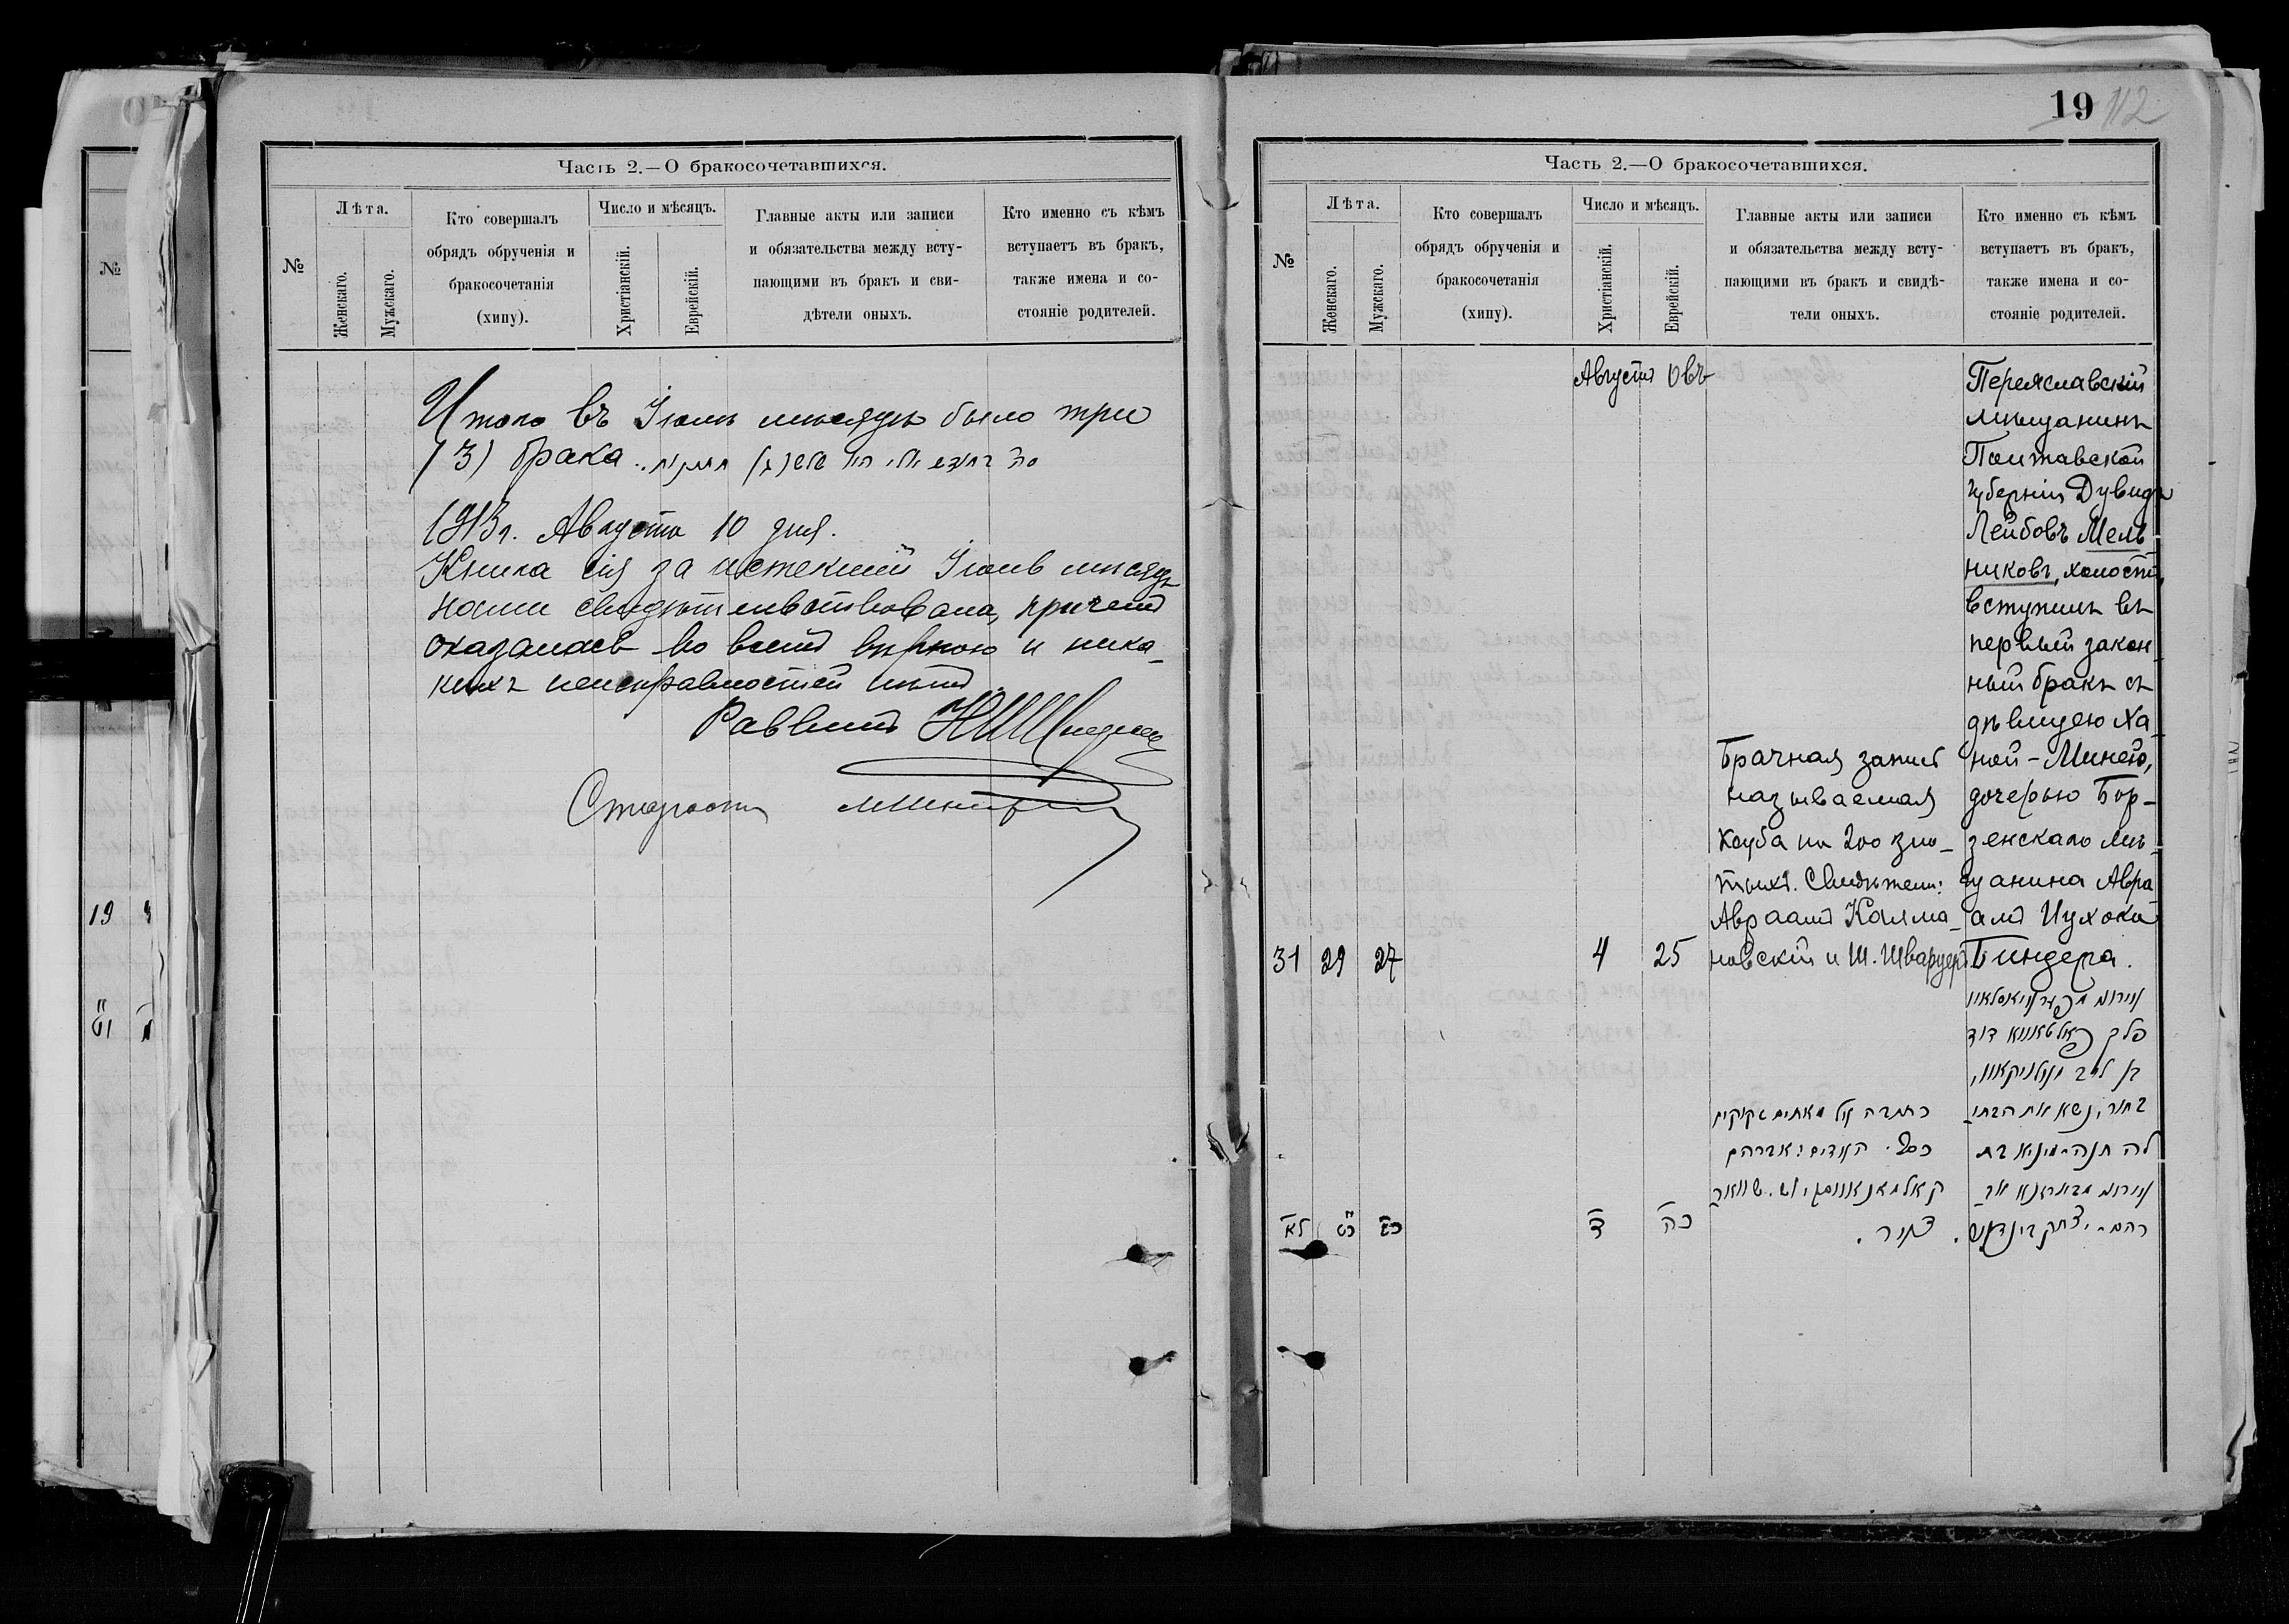 №
19
Часть 2.—О бракосочетавшихся.
№
Лѣта.
Женскаго.
Мужскаго.
Кто совершалъ
обрядъ обрученія и
бракосочетанія
(хипу).
Число и мѣсяцъ.
Христіанскій.
Еврейскій.
Главные акты или записи
и обязательства между всту-
пающими въ бракъ и сви-
дѣтели оныхъ.
Кто именно съ кѣмъ
вступаетъ въ бракъ,
также имена и со-
стояніе родителей.
Итого въ Іюлѣ мѣсяцѣ было три
(3) брака
1913 г. Августа 10 дня.
Книга сія за истекшій Іюль мѣсяцъ
нами свидѣтельствована, причемъ
оказалась во всемъ вѣрною и ника-
кихъ неисправностей нѣтъ.
Раввинъ
Староста
19 112
Часть 2.—О бракосочетавшихся.
№
Лѣта.
Женскаго.
Мужскаго.
Кто совершалъ
обрядъ обрученія и
бракосочетанія
(хипу).
Число и мѣсяцъ.
Христіанскій.
Еврейскій.
Главные акты или записи
и обязательства между всту-
пающими въ бракъ и свидѣ-
тели оныхъ.
Кто именно съ кѣмъ
вступаетъ въ бракъ,
также имена и со-
стояніе родителей.
Августъ Овъ
31 29 27 4 25
Брачная запись
называемая
Ксуба на 200 зло-
тыхъ. Свидѣтели:
Авраамъ Калма-
новскій и Ш. Шварцеръ
Переяславскій
мѣщанинъ
Полтавской
губерніи Дувидъ
Лейбовъ Мель
никовъ, холостъ,
вступилъ въ
первый закон-
ный бракъ съ
дѣвицею Ха-
ной-Минею,
дочерью Бор-
зенскаго мѣ-
щанина Авра
амъ Ицхока
Биндера.
לא כט כז ד כה
כתובה על מאתים זקוקים
כסף. העדים: אברהם
קאלמאנאווסקי, ש. שוואר
צער.
פלך פאלטאווא דוד
בן ליב מעלניקאוו,
בחור, נשא את הבתו
לה חנה-מיניא בת
רהם-יצחק בינדער.